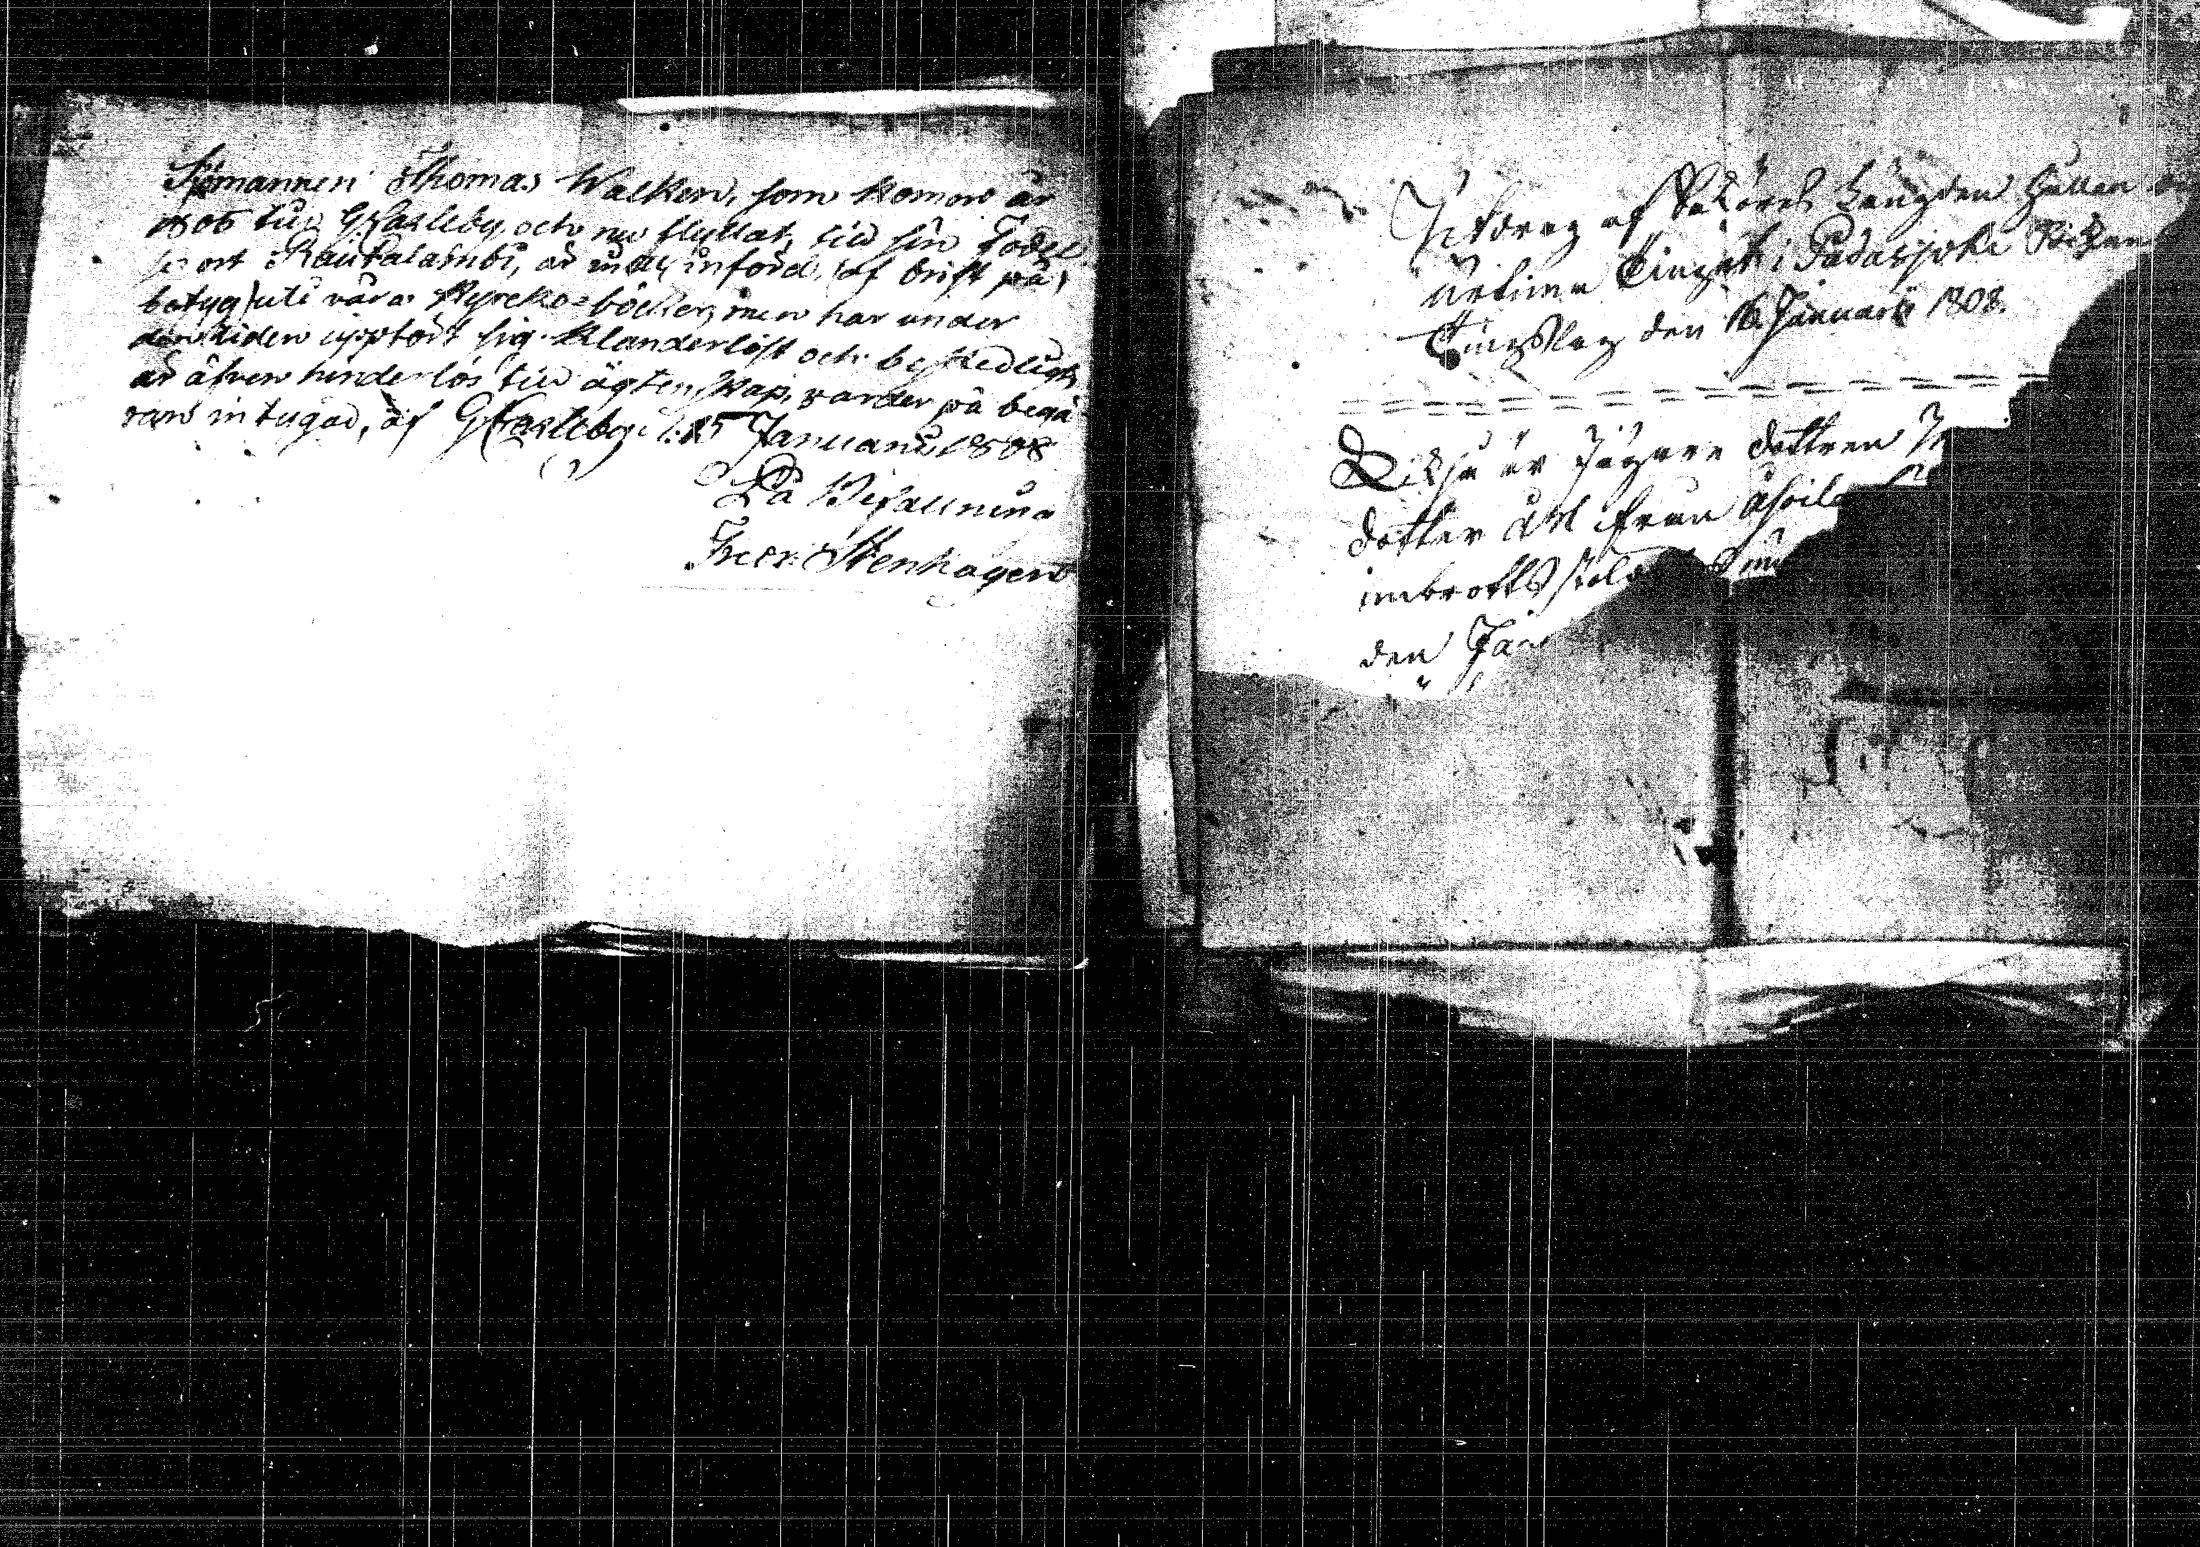 Sjömannen Thomas Walken, som kommo år
1806 till GKarleby, och nu flyttat till sin Födel
se ort Rautalambi, är intet införd, (af brist på
betyg) uti våra Kyrcko-böcker, men har under
den tiden uppfört sig klanderlöst och beskedligt
är äfven hinderlös till ägtenskap, varder på begä
ran intygad, af GKarleby d. 15 Januarii 1808
På Befallning
Fredr. Stenhagen
Utdrag af Saköres Längden hållen
urtima Tinget i Padasjoki Sockens
Tingslag den 16 Januarii 1808.
Pigan är Jägare dottren
dotter ått ifrån
inbrotts stöld
den Jan